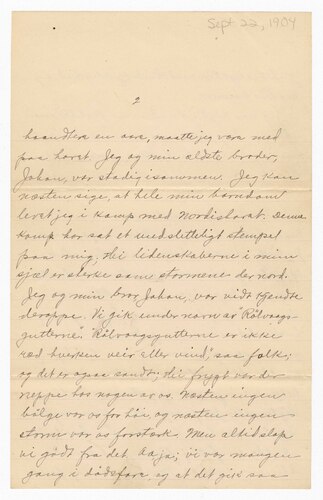 Sept 22, 1904
2
haandtere en aare, maatte jeg være med
paa havet. Jeg og min ældste broder,
Johan, var stadig isammen. Jeg kan
næsten sige, at hele min barndom
levet jeg i kamp med Nordishavet. Denne
kamp har sat et uudsletteligt stempel
paa mig, thi lidenskaberne i min
sjæl er sterke som stormene der nord.
Jeg og min bror Johan, var vidt kjendte
deroppe. Vi gik under navn av "Rölvaags-
gutterne". "Rölvaagsgutterne er ikke
ræd hverken veir eller vind," saa folk;
og det er ogsaa sandt; thi frygt var der
neppe hos nogen av os. Næsten ingen
bölge var os for höi, og næsten ingen
storm var os forstærk. Men altid slap
vi godt fra det. Aa ja; vi var mangen
gang i dödsfare, og at det gik saa